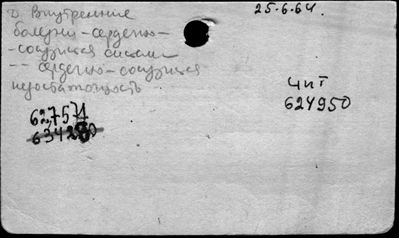 25.6.64.
2) Внутренние
болезни - сердечно-
- сосудистая система
-- сердечно-сосудистая
недостаточность
чит
624950
627571
634280